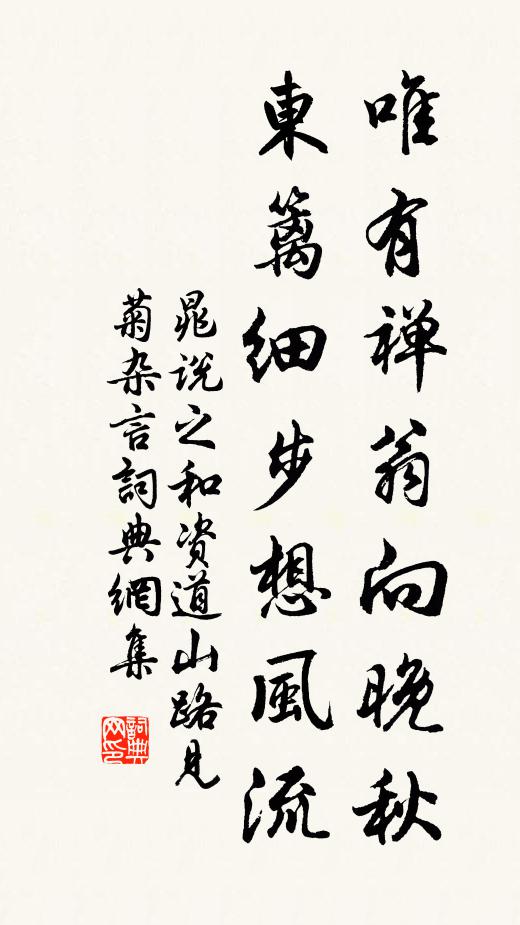 唯有禅翁向晚秋
東籬細步想風流
晁说之和资道山路見
菊杂言詞典網集
詞典网印